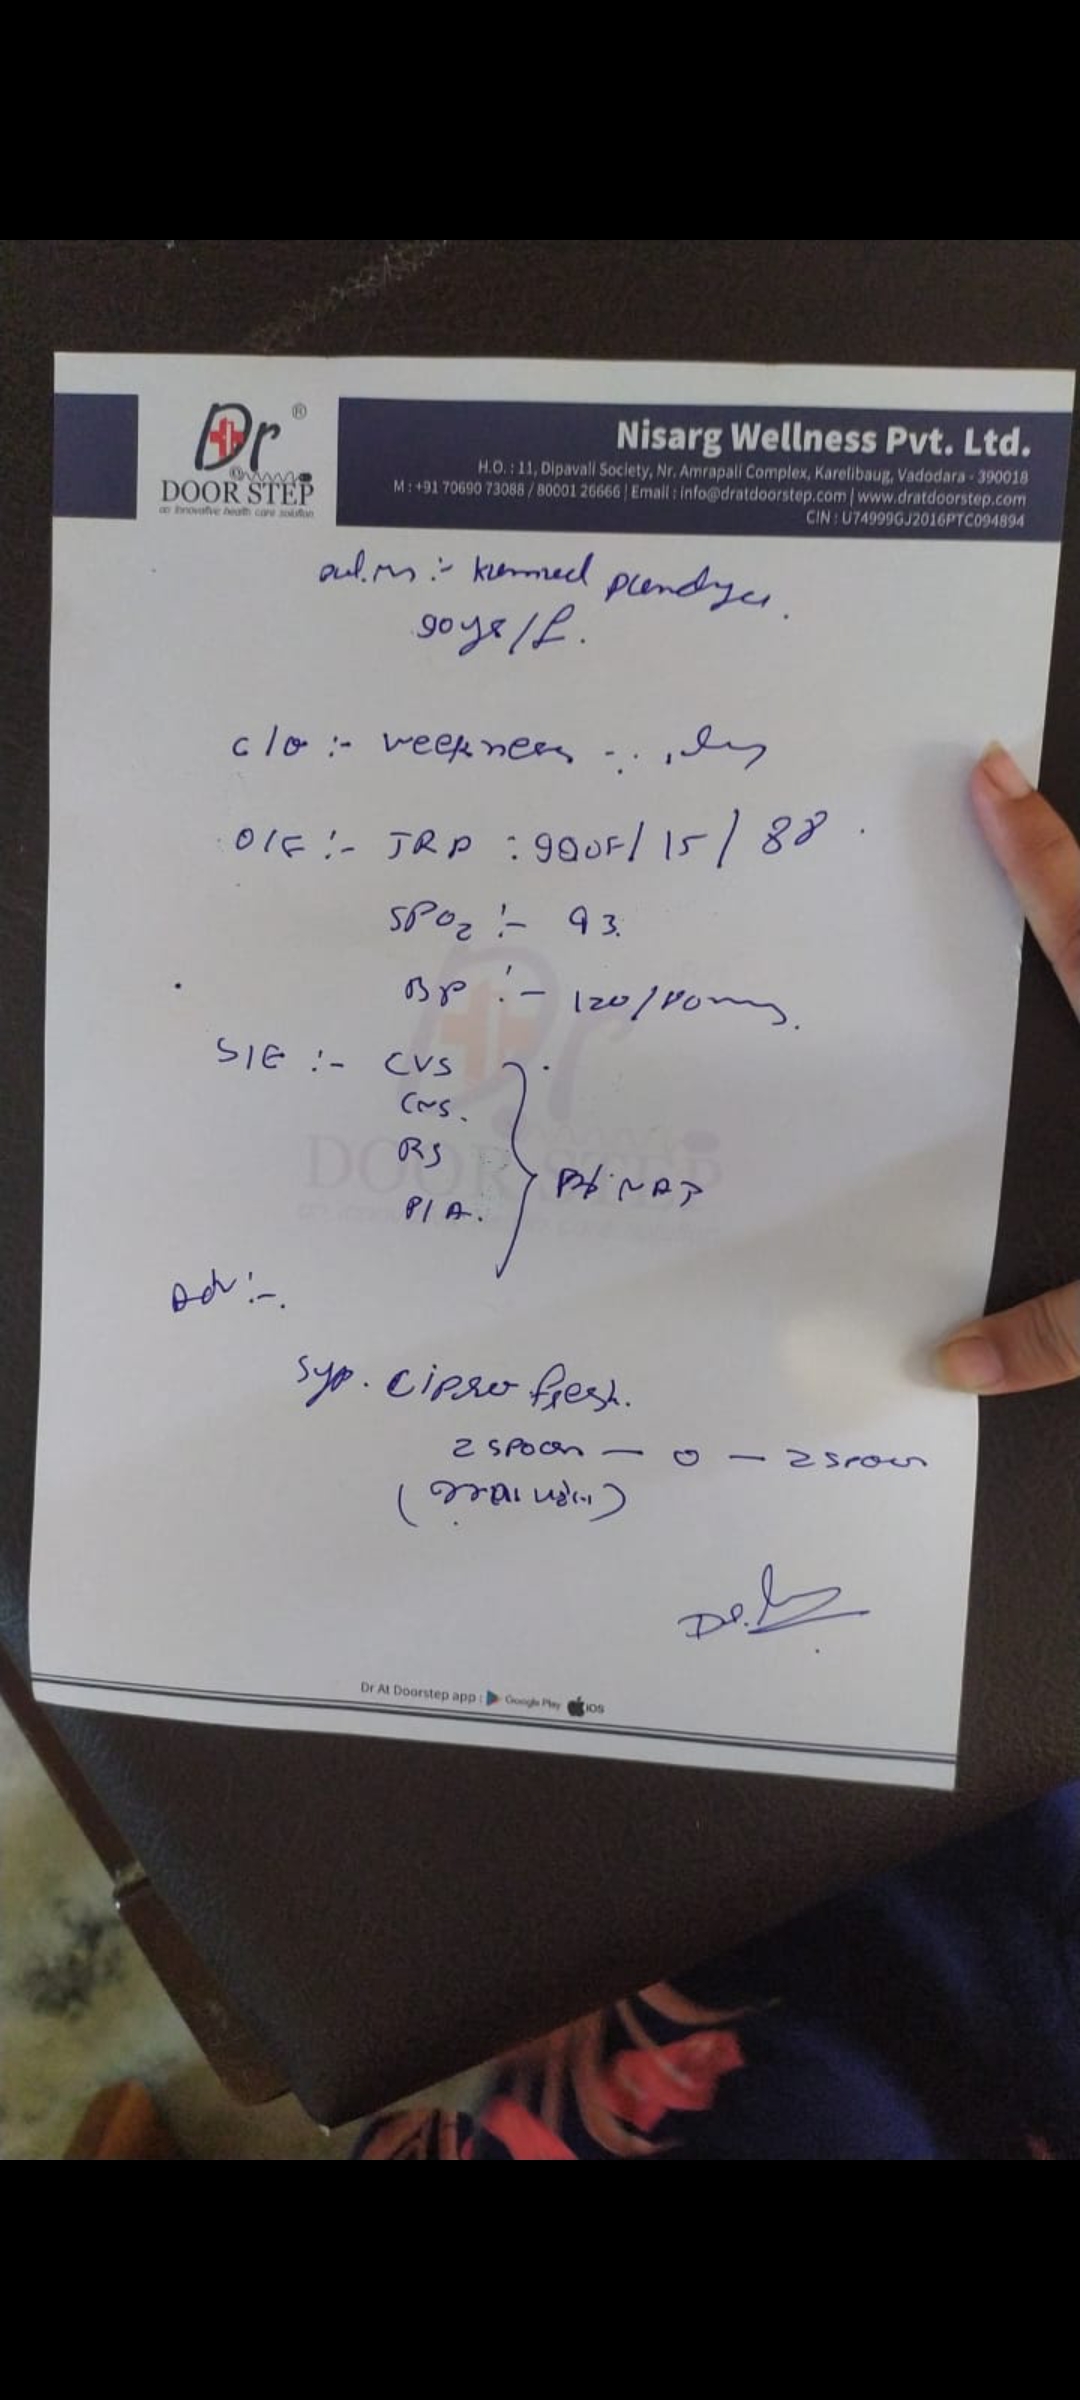 Dr ®
DOOR STEP
an innovative health care solution
Nisarg Wellness Pvt. Ltd.
H.O. : 11, Dipavali Society, Nr. Amrapali Complex, Karelibaug, Vadodara - 390018
M : +91 70690 73088 / 80001 26666 | Email : info@dratdoorstep.com | www.dratdoorstep.com
CIN : U74999GJ2016PTC094894
90 ys/f.
c/o :- weekness
O/E :- TRP : 990F/ 15 / 88
SPO2 :- 93.
BP :- 120/80
S/E :- CVS
CNS.
RS
P/A.
NAD
Adv :-.
Syp. Cipro fresh.
2 spoon — 0 — 2 spoon
Dr.
Dr At Doorstep app : Google Play iOS